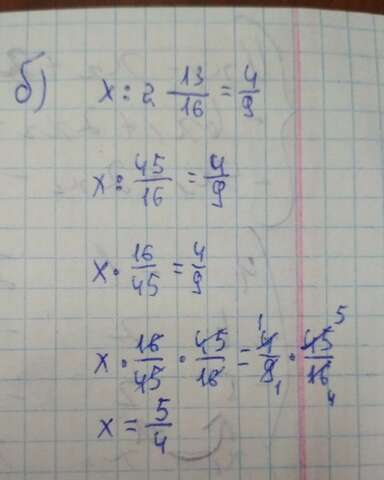 б) x : 2 13/16 = 4/9
x : 45/16 = 4/9
x · 16/45 = 4/9
x · 16/45 · 45/16 = 4/9 · 45/16 1 1 5 4
x = 5/4